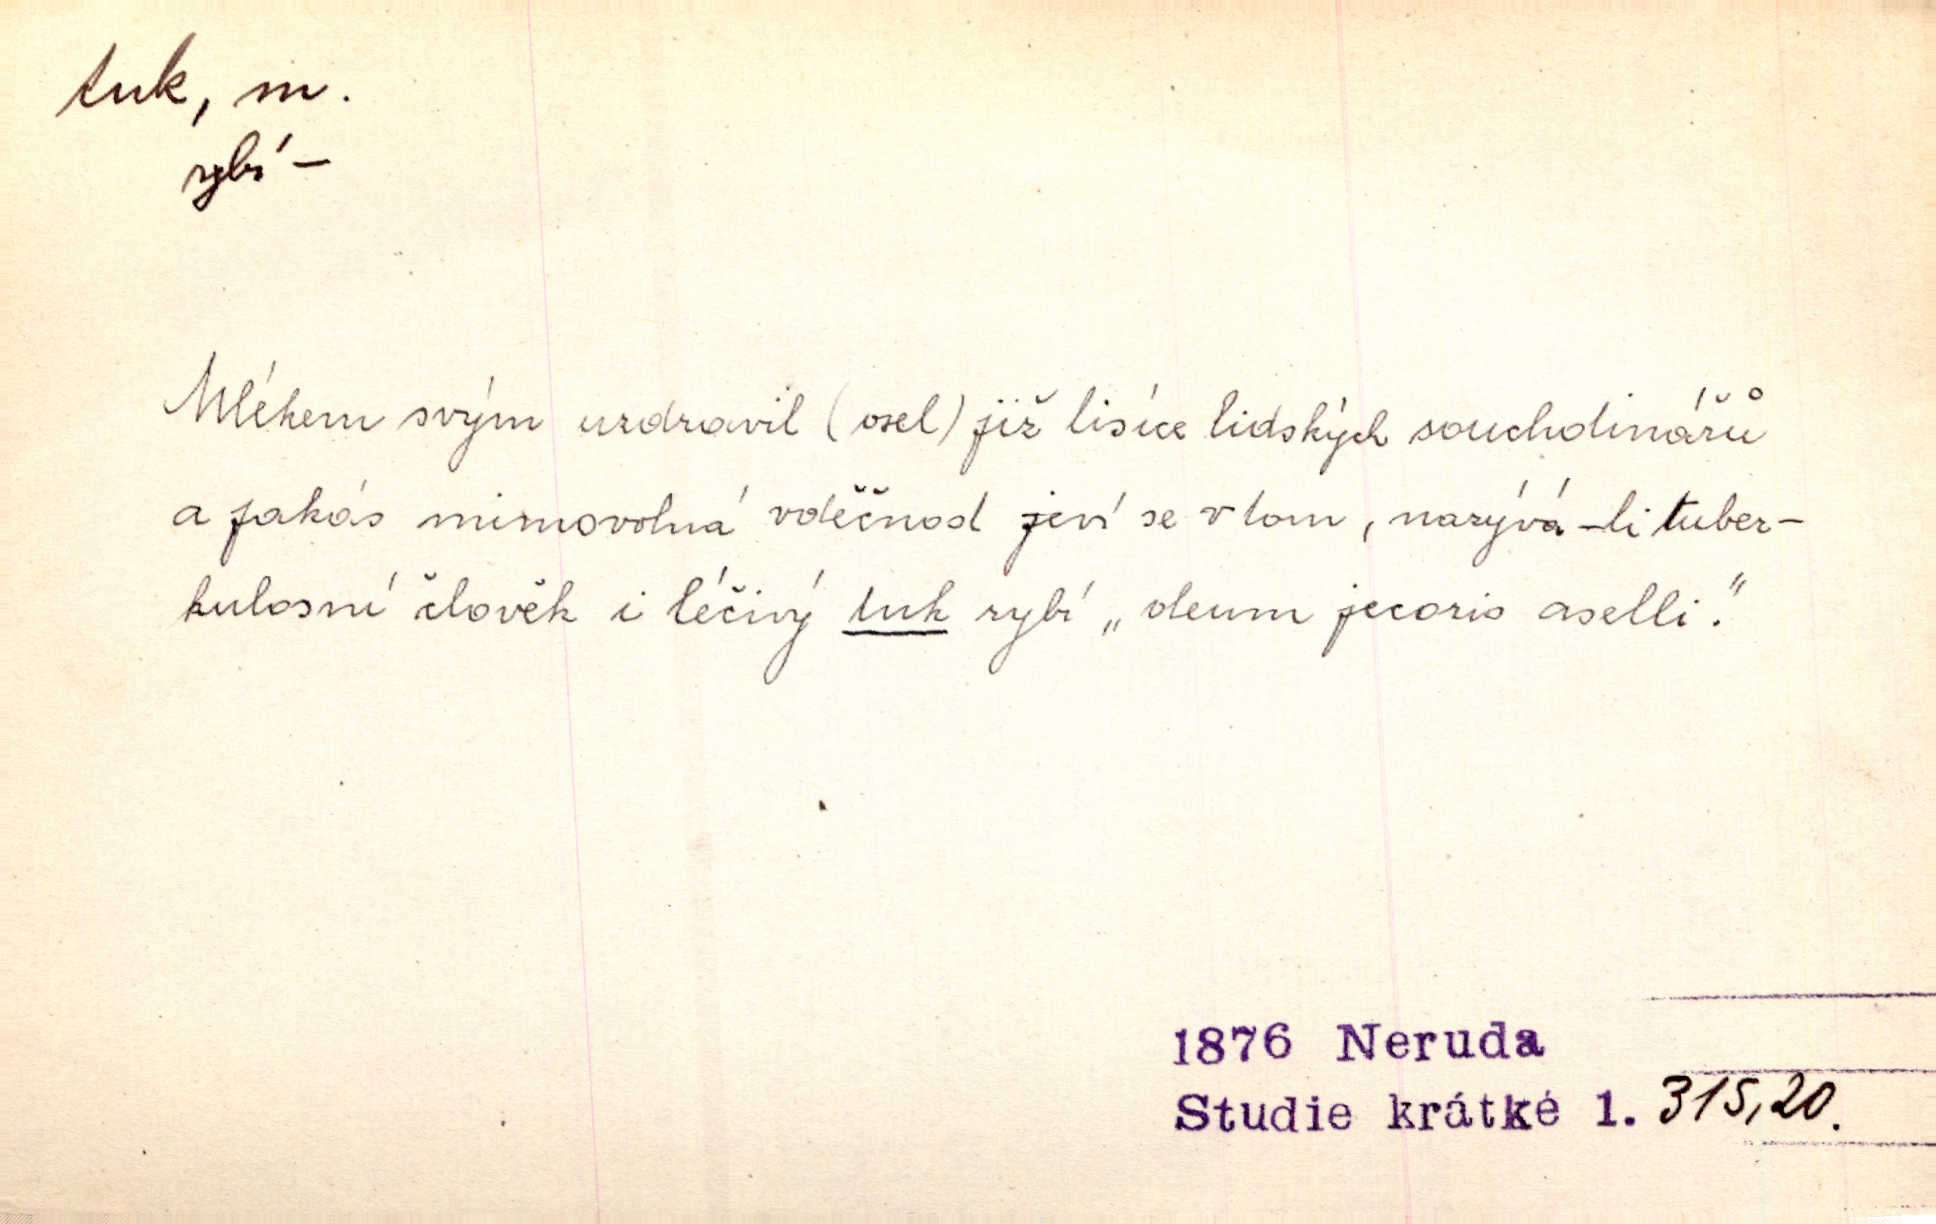 tuk, m.
rybí –
Mlékem svým uzdravil (osel) již tisíce lidských souchotinářů
a jakás mimovolná vděčnost jeví se v tom, nazývá-li tuber-
kulosní člověk i léčivý tuk rybí „oleum jecoris aselli."
1876 Neruda
Studie krátké 1. 315,20.